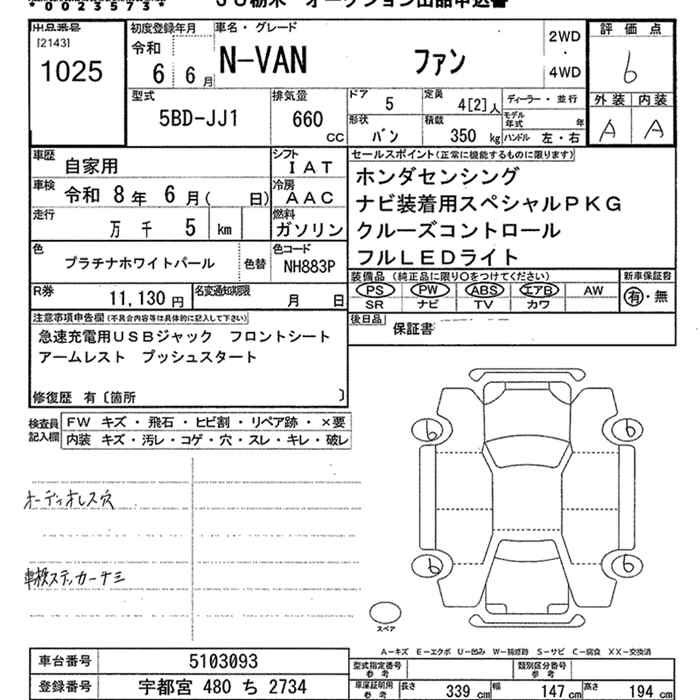 *0023573*
JU栃木 オークション出品申込書
出品番号
[2143]
1025
初度登録年月
令和
6 6月
車名・グレード
N-VAN ファン
2WD
・
4WD
評価点
6
外装 内装
A A
型式
5BD-JJ1
排気量
660 CC
ドア 5
定員 4[2]人
形状 バン
積載 350 kg
ディーラー・並行
モデル年式 年
ハンドル 左・右
車歴 自家用
シフト IAT
車検 令和 8年 6月( 日)
冷房 AAC
走行 万 千 5 km
燃料 ガソリン
色 プラチナホワイトパール
色替
色コード NH883P
R券 11,130円
名変通知期限 月 日
セールスポイント(正常に機能するものに限ります)
ホンダセンシング
ナビ装着用スペシャルPKG
クルーズコントロール
フルLEDライト
装備品 (純正品に限り○をつけてください)
PS PW ABS エアB AW
SR ナビ TV カワ
新車保証書
有・無
後日品 保証書
注意事項申告欄(不具合内容等は具体的に記入して下さい)
急速充電用USBジャック フロントシート
アームレスト プッシュスタート
修復歴 有〔箇所 〕
検査員記入欄
FW キズ・飛石・ヒビ割・リペア跡・×要
内装 キズ・汚レ・コゲ・穴・スレ・キレ・破レ
オーディオレス穴
車検ステッカーナシ
6 6
6 6
スペア
A-キズ E-エクボ U-凹み W-補修跡 S-サビ C-腐食 XX-交換済
車台番号 5103093
登録番号 宇都宮 480 ち 2734
型式指定番号 参考
類別区分番号 参考
車庫証明用 参考
長さ 339 cm
幅 147 cm
高さ 194 cm